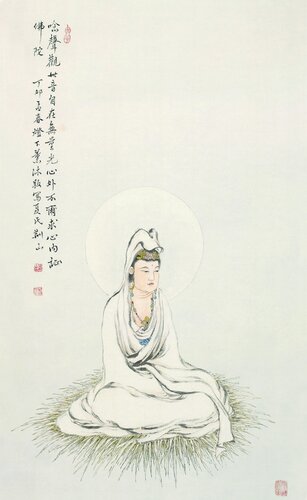 唸聲觀世音自在無量光心外不爾求心內証
佛陀 丁卯孟春燈下薰沐敬寫夏氏荆山